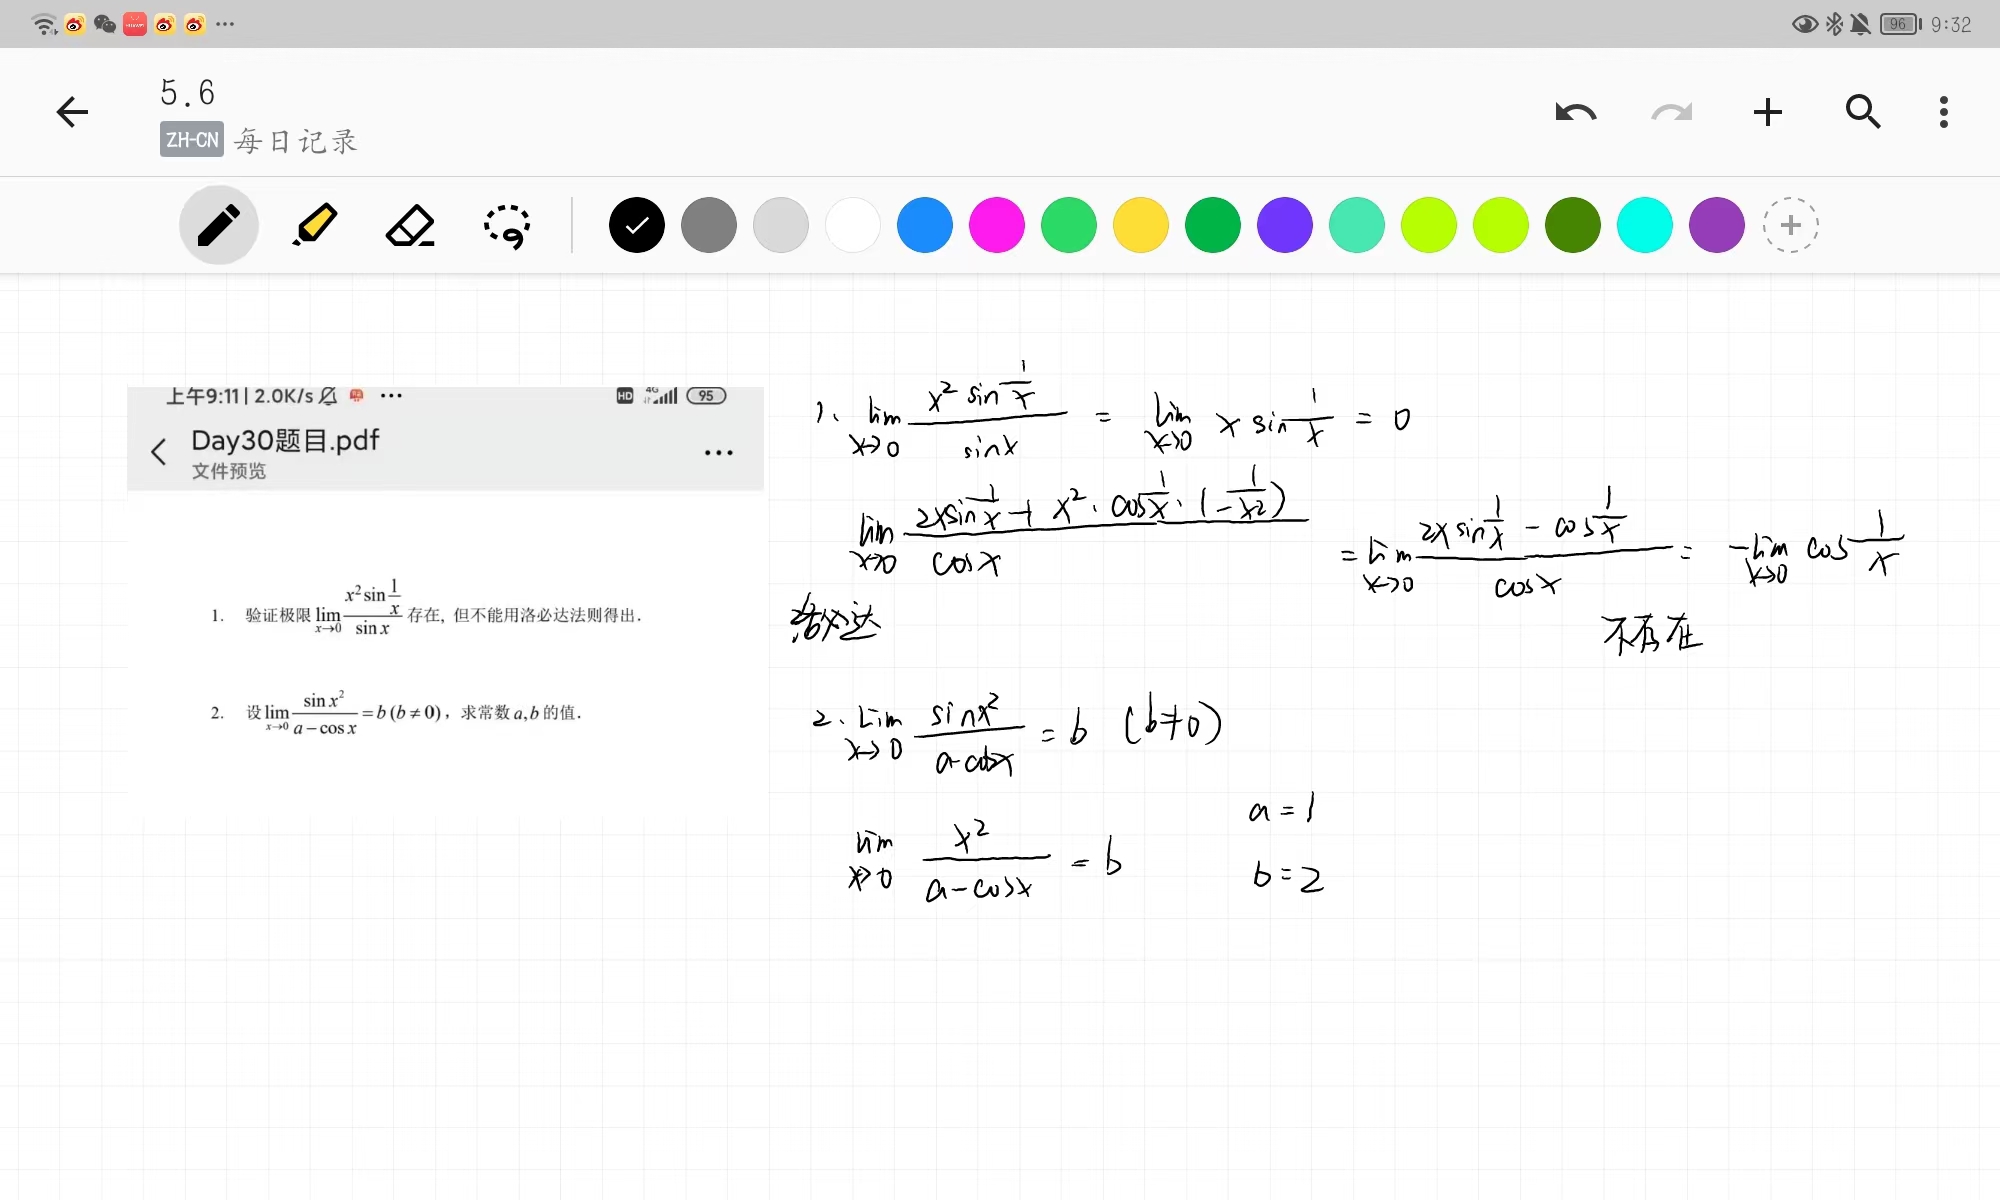 96 9:32
5.6
ZH-CN 每日记录
上午9:11 | 2.0K/s HD 4G 95
Day30题目.pdf
文件预览
1. 验证极限 lim x→0 (x² sin 1/x)/(sin x) 存在, 但不能用洛必达法则得出.
2. 设 lim x→0 (sin x²)/(a − cos x) = b (b ≠ 0), 求常数 a, b 的值.
1. lim x→0 (x² sin 1/x)/(sin x) = lim x→0 x sin 1/x = 0
lim x→0 (2x sin 1/x + x² · cos 1/x · (− 1/x²))/(cos x) = lim x→0 (2x sin 1/x − cos 1/x)/(cos x) = − lim x→0 cos 1/x
洛必达 不存在
2. lim x→0 (sin x²)/(a − cos x) = b (b ≠ 0)
lim x→0 x²/(a − cos x) = b
a = 1
b = 2